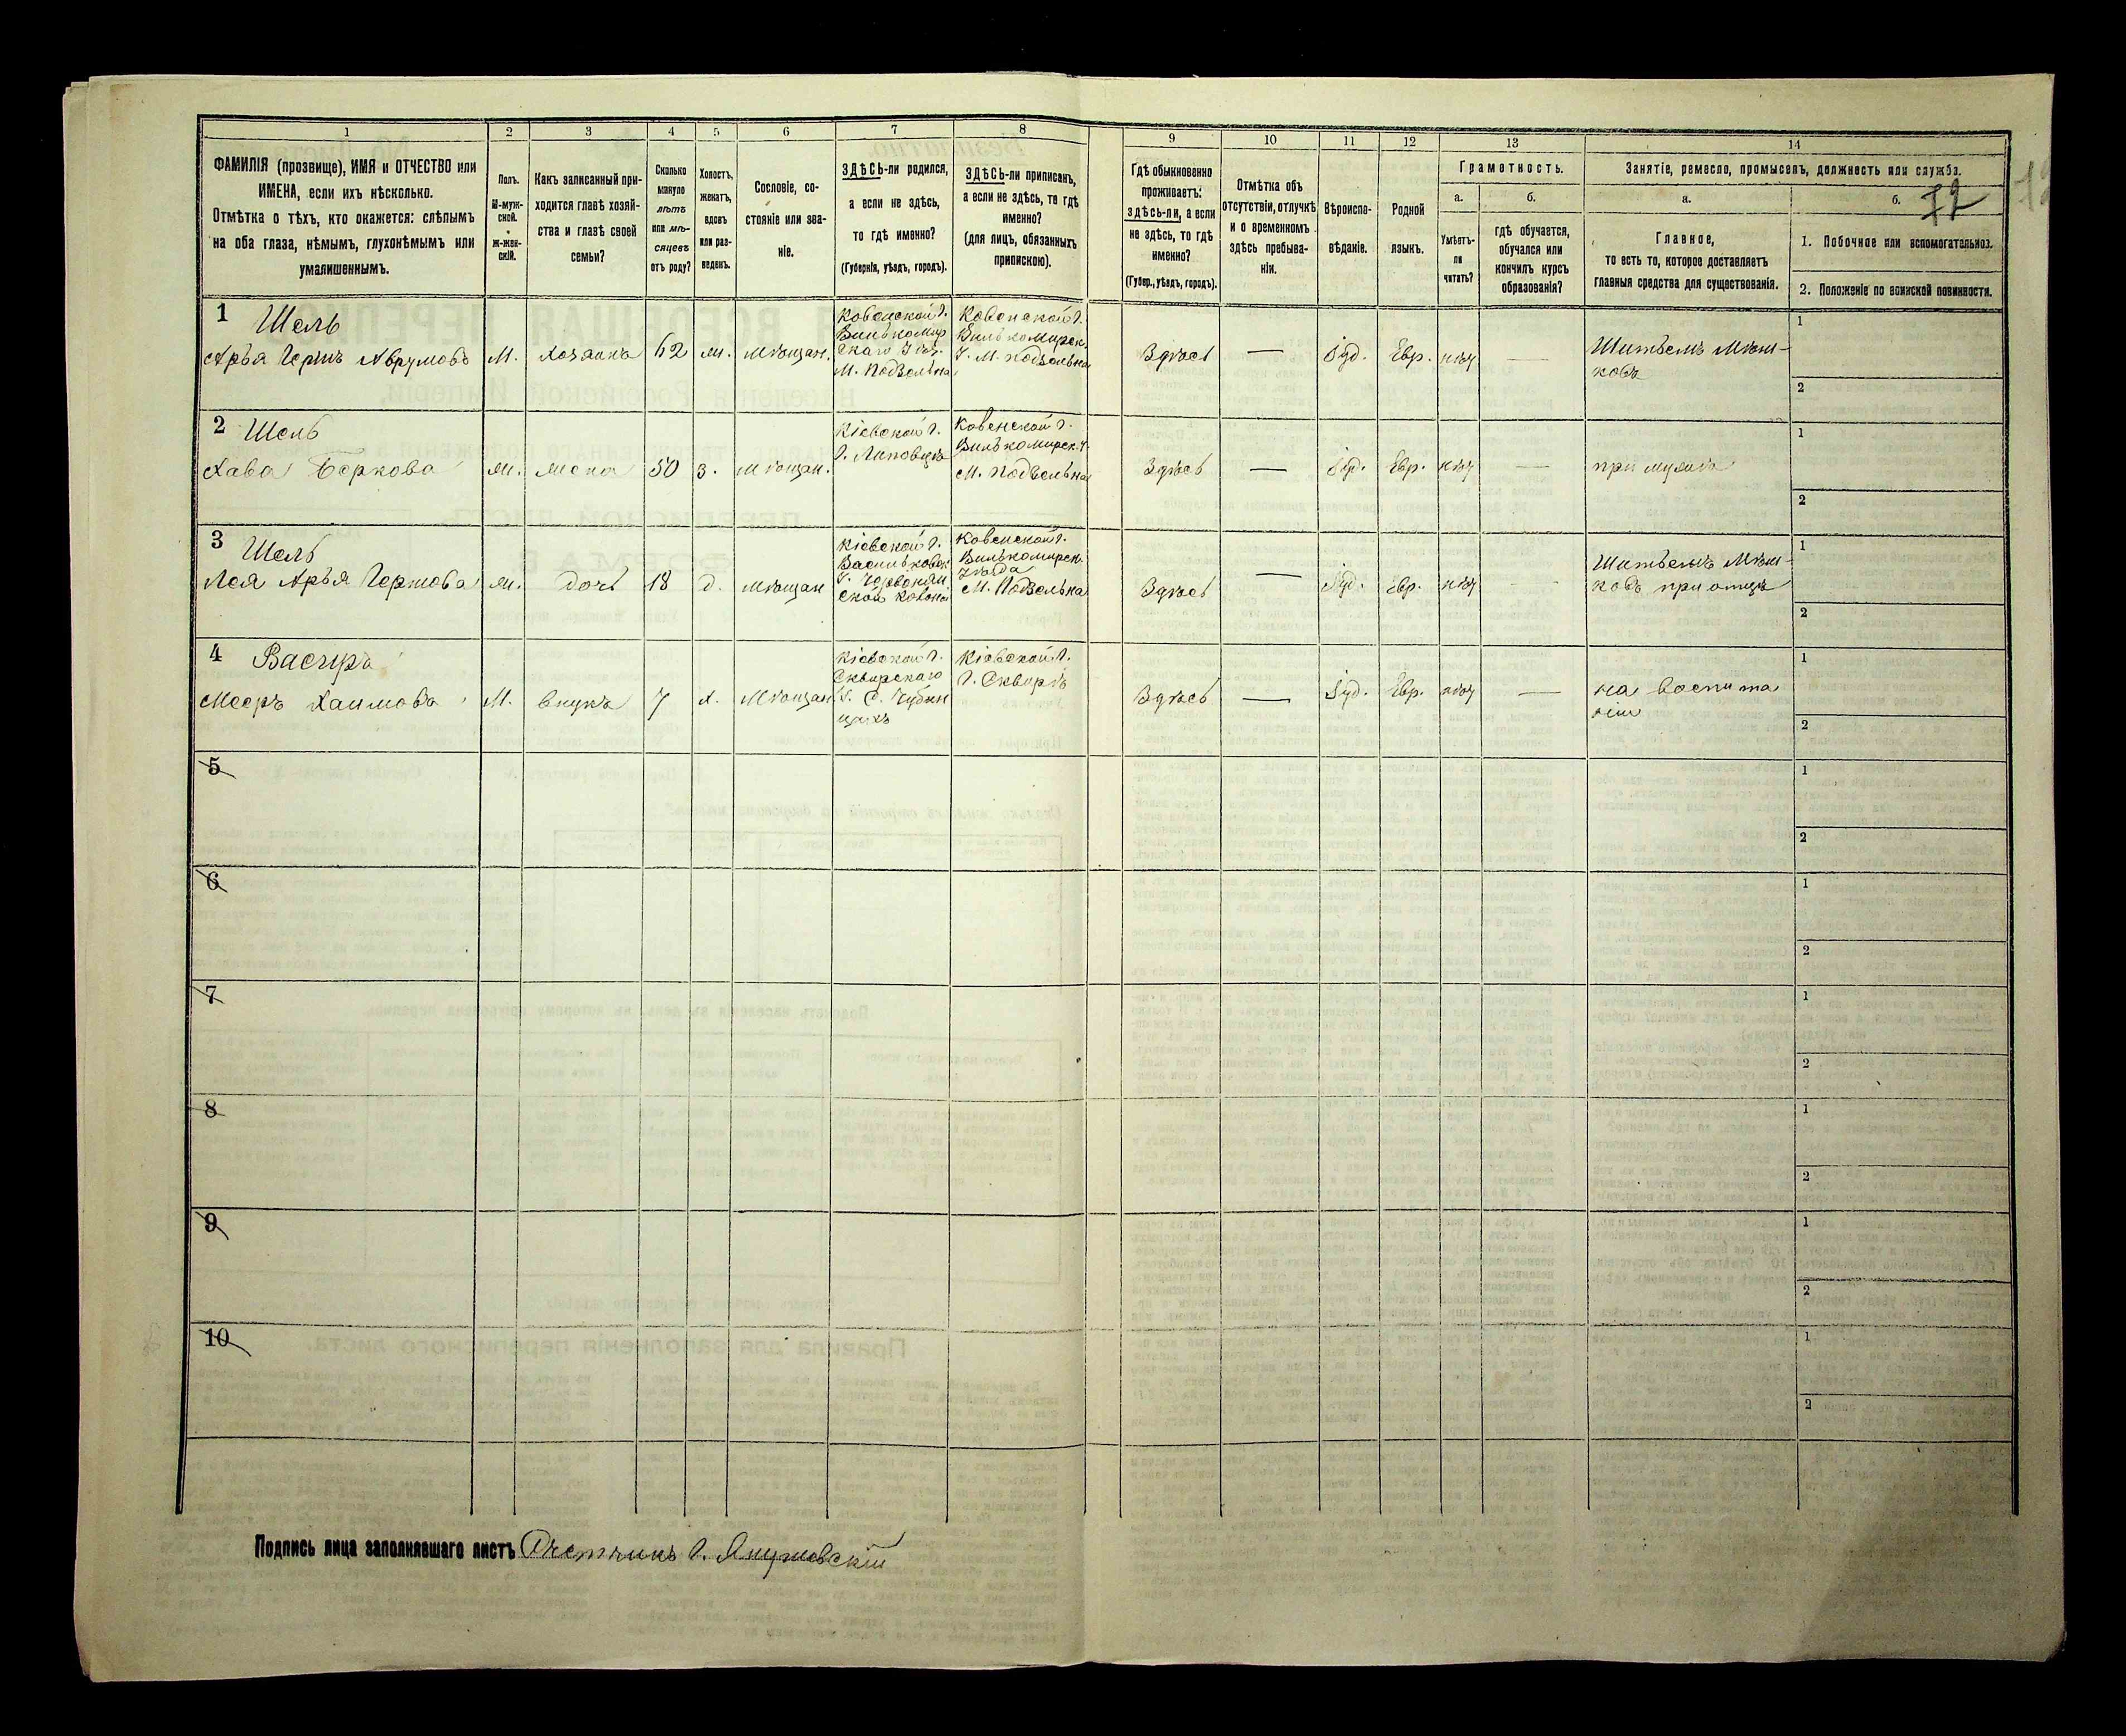 1 2 3 4 5 6 7 8 9 10 11 12 13 14
ФАМИЛІЯ (прозвище), ИМЯ и ОТЧЕСТВО или
ИМЕНА, если ихъ нѣсколько.
Отмѣтка о тѣхъ, кто окажется: слѣпымъ
на оба глаза, нѣмымъ, глухонѣмымъ или
умалишеннымъ.
Полъ.
М-муж-
ской.
Ж-жен-
скій.
Какъ записанный при-
ходится главѣ хозяй-
ства и главѣ своей
семьи?
Сколько
минуло
лѣтъ
или мѣ-
сяцевъ
отъ роду?
Холостъ,
женатъ,
вдовъ
или раз-
веденъ.
Сословіе, со-
стояніе или зва-
ніе.
ЗДѢСЬ-ли родился,
а если не здѣсь,
то гдѣ именно?
(Губернія, уѣздъ, городъ).
ЗДѢСЬ-ли приписанъ,
а если не здѣсь, то гдѣ
именно?
(для лицъ, обязанныхъ
припискою).
Гдѣ обыкновенно
проживаетъ:
здѣсь-ли, а если
не здѣсь, то гдѣ
именно?
(Губер., уѣздъ, городъ).
Отмѣтка объ
отсутствіи, отлучкѣ
и о временномъ
здѣсь пребыва-
ніи.
Вѣроиспо-
вѣданіе.
Родной
языкъ.
Грамотность.
а.
Умѣетъ-
ли
читать?
б.
гдѣ обучается,
обучался или
кончилъ курсъ
образованія?
Занятіе, ремесло, промыселъ, должность или служба.
а.
Главное,
то есть то, которое доставляетъ
главныя средства для существованія.
б. 72
1. Побочное или вспомогательное.
2. Положеніе по воинской повинности.
1 Шель
Арья Гершъ Аврумовъ
М. хозяинъ 62 ж. мѣщан.
Ковенской г.
Вилькомир
скаго Уѣз.
М. Подзельна
Ковенской г.
Вилькомирск.
У. М. Подзельна
Здѣсь — Іуд. Евр. нѣт —
Шитьемъ Мѣш-
ковъ
1
2
2 Шель
Хава Беркова
ж. жена 50 з. мѣщан.
Кіевской г.
г. Липовцѣ
Ковенской г.
Вилькомирск. У.
М. Подзельна
Здѣсь — Іуд. Евр. нѣт —
при мужѣ
1
2
3 Шель
Лея Арья Гершова
ж. дочь 18 д. мѣщан
Кіевской г.
Васильковск
У.
Ковенской г.
Вилькомирск.
Уѣзда
М. Подзельна
Здѣсь — Іуд. Евр. нѣт —
Шитьемъ Мѣш-
ковъ при отцѣ
1
2
4
Мееръ Хаимовъ
М. внукъ 7 х. Мѣщан
Кіевской г.
Сквирскаго
У. С. Чубин
цахъ
Кіевской г.
г. Сквирѣ
Здѣсь — Іуд. Евр. нѣт —
на воспита
ніи
1
2
5
1
2
6
1
2
7
1
2
8
1
2
9
1
2
10
1
2
Подпись лица заполнявшаго листъ Счетчикъ